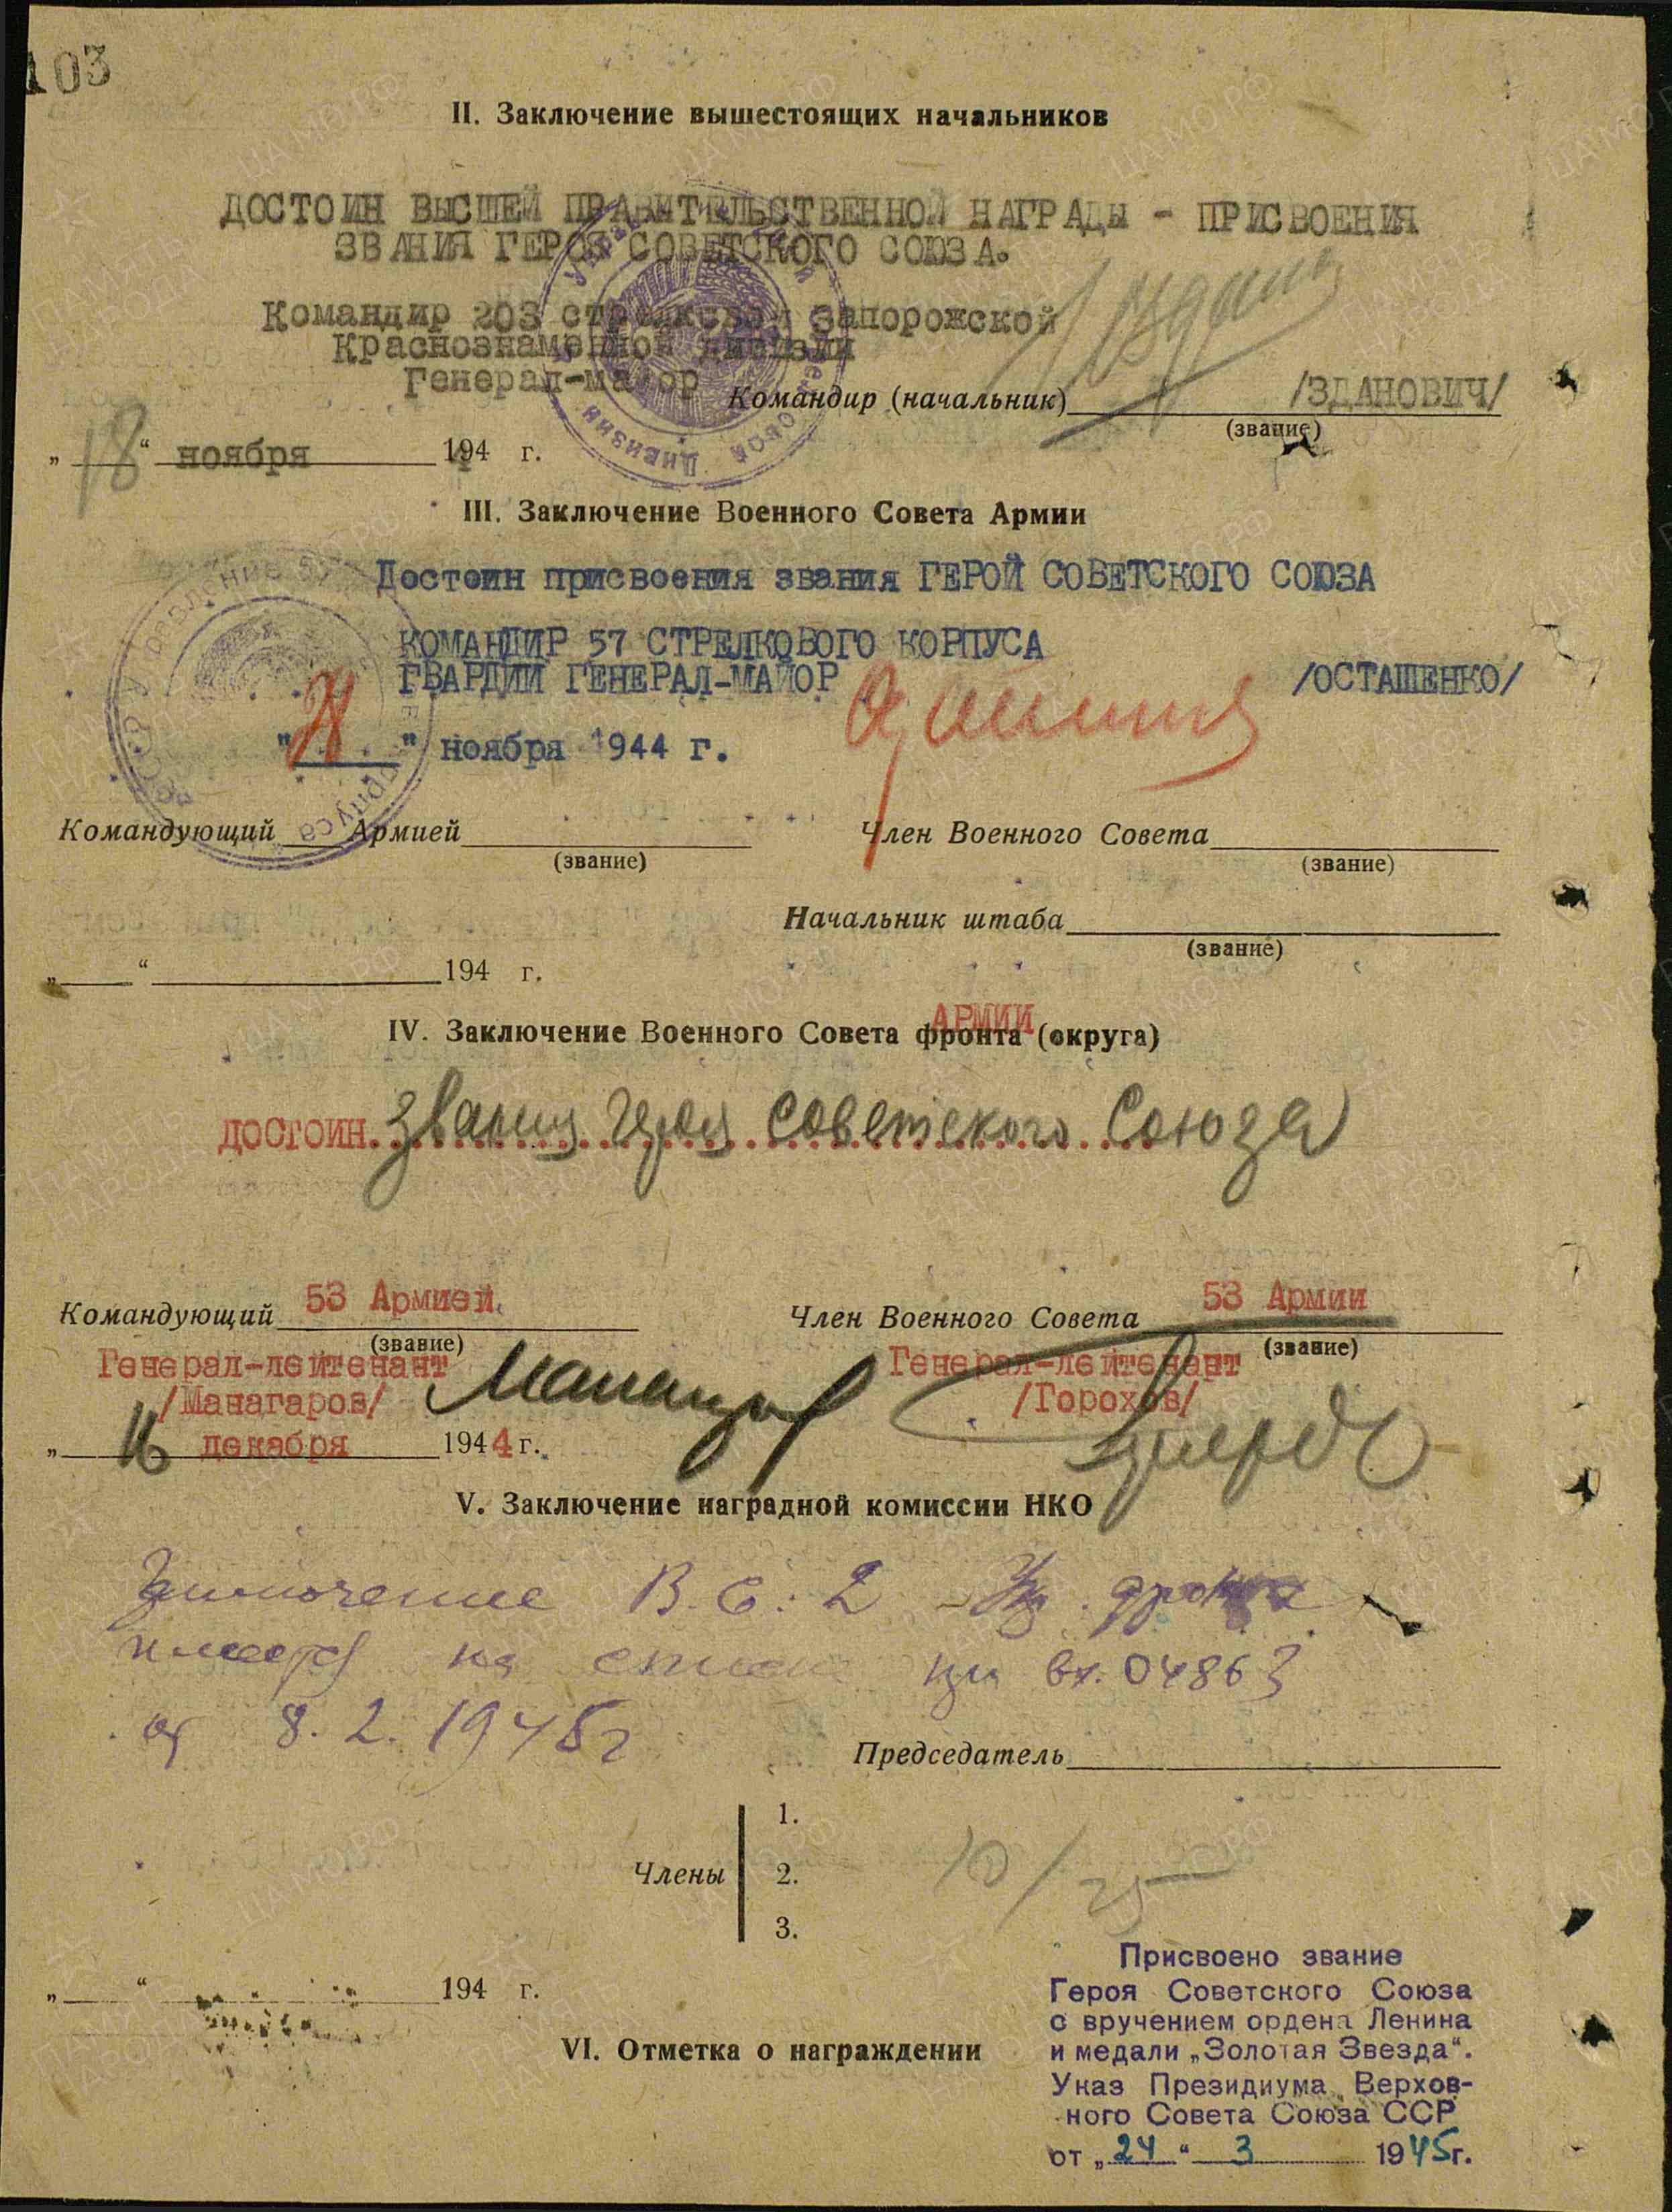 103
II. Заключение вышестоящих начальников
ДОСТОИН ВЫСШЕЙ ПРАВИТЕЛЬСТВЕННОЙ НАГРАДЫ - ПРИСВОЕНИЯ
ЗВАНИЯ ГЕРОЯ СОВЕТСКОГО СОЮЗА.
Командир 203 стрелковой Запорожской
Краснознаменной дивизии
Генерал-майор
Командир (начальник) /ЗДАНОВИЧ/
(звание)
„18“ ноября 1944 г.
III. Заключение Военного Совета Армии
Достоин присвоения звания ГЕРОЙ СОВЕТСКОГО СОЮЗА
КОМАНДИР 57 СТРЕЛКОВОГО КОРПУСА
ГВАРДИИ ГЕНЕРАЛ-МАЙОР /ОСТАШЕНКО/
" " ноября 1944 г.
Командующий Армией Член Военного Совета
(звание) (звание)
Начальник штаба
(звание)
„ “ 194 г.
АРМИИ
IV. Заключение Военного Совета фронта (округа)
достоин звания Героя Советского Союза
Командующий 53 Армией Член Военного Совета 53 Армии
(звание) (звание)
Генерал-лейтенант Генерал-лейтенант
/Манагаров/ /Горохов/
„16 декабря 1944 г.
V. Заключение наградной комиссии НКО
Заключение В.С. 2 Укр. фронта
имеется на списке при вх. 04863
от 8.2.1945г
Председатель
1.
Члены 2.
3.
10/25
„ “ 194 г.
VI. Отметка о награждении
Присвоено звание
Героя Советского Союза
с вручением ордена Ленина
и медали „Золотая Звезда“.
Указ Президиума Верхов-
ного Совета Союза ССР
от „24“ 3 1945г.